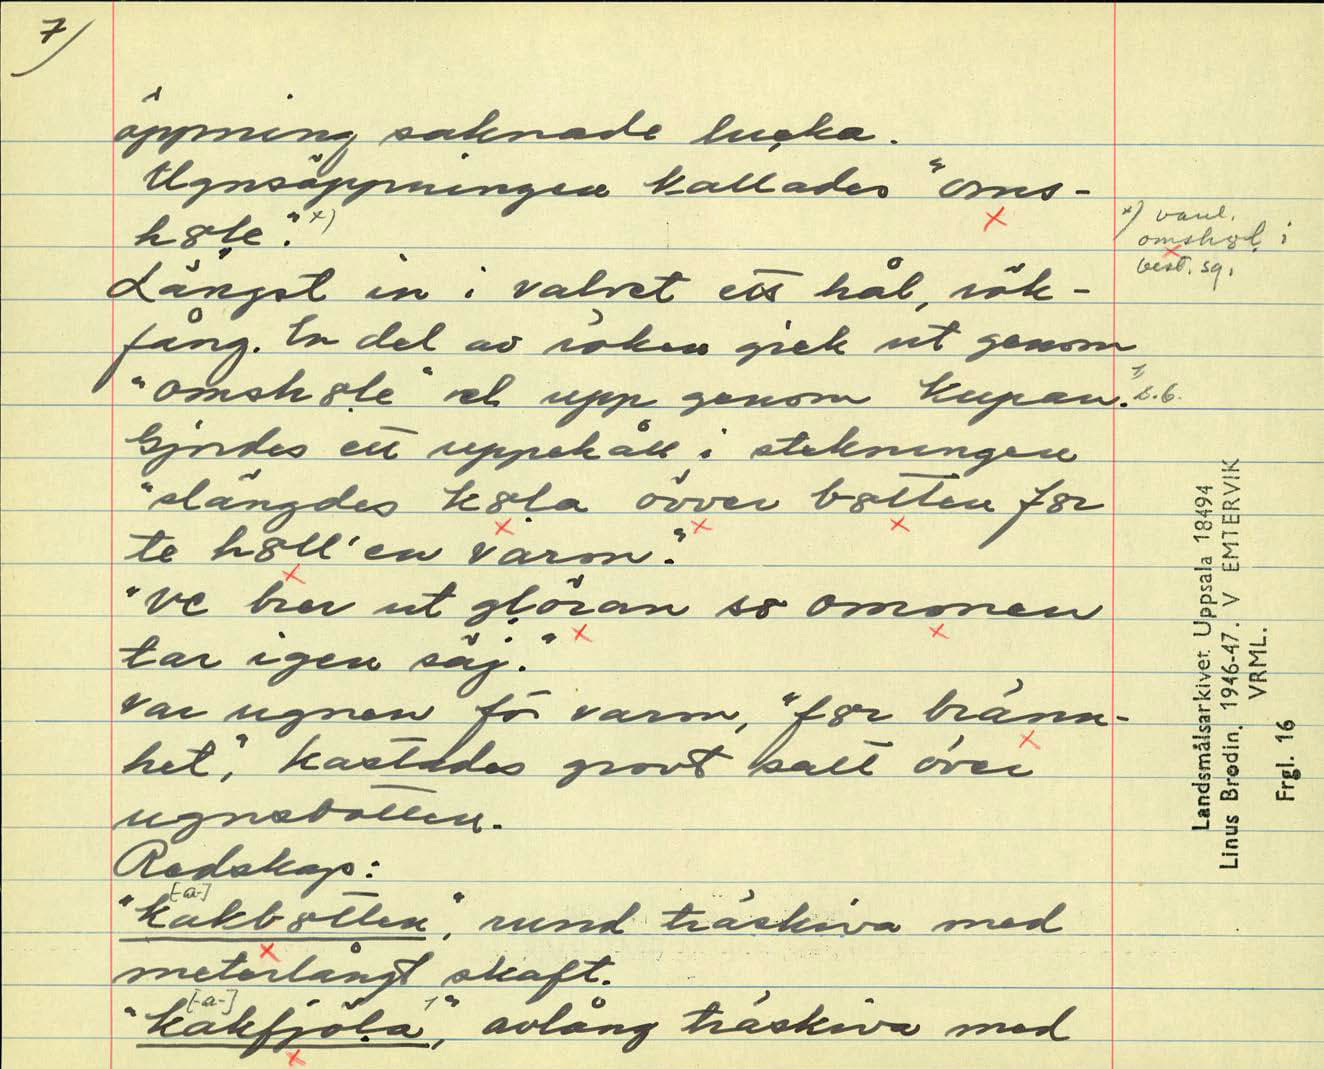 7)
öppning saknade lucka.
Ugnsöppningen kallades "oms-
h8le".x)
x) vanl.
omsh8l i
best. sg.
Längst in i valvet ett hål, rök-
fång. En del av röken gick ut genom
"omsh8le" el upp genom kupan.
Gjordes ett uppehåll i stekningen
"slängdes k8la övver b8tten f8r
te h8ll'en varm."
"Ve brer ut glöran s8 ommnen
tar igen säj."
Var ugnen för varm, "f8r bränn-
het", kastades grovt salt över
ugnsbotten.
Redskap:
[-a-]
"kakb8tten", rund träskiva med
meterlångt skaft.
[-a-]
"kakfjöla", avlång träskiva med
Landsmålsarkivet Uppsala 18494
Linus Brodin. 1946-47. V EMTERVIK
VRML.
Frgl. 16